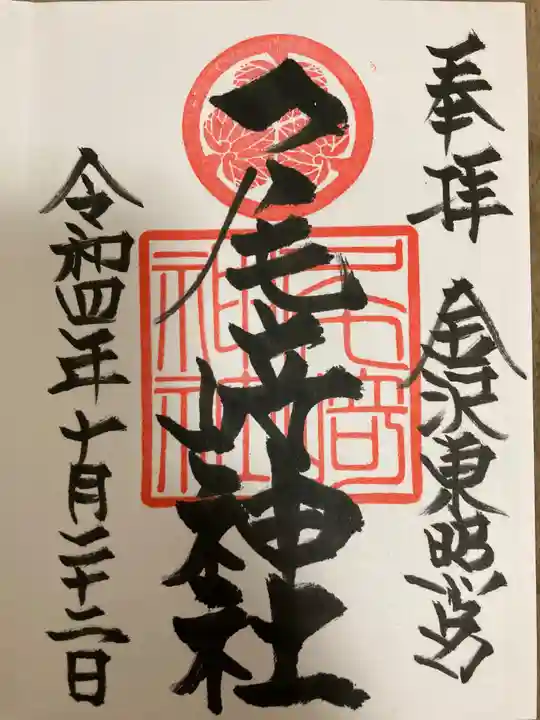 奉拝
金沢東照宮
尾崎神社
令和四年十月二十二日
尾崎
神社